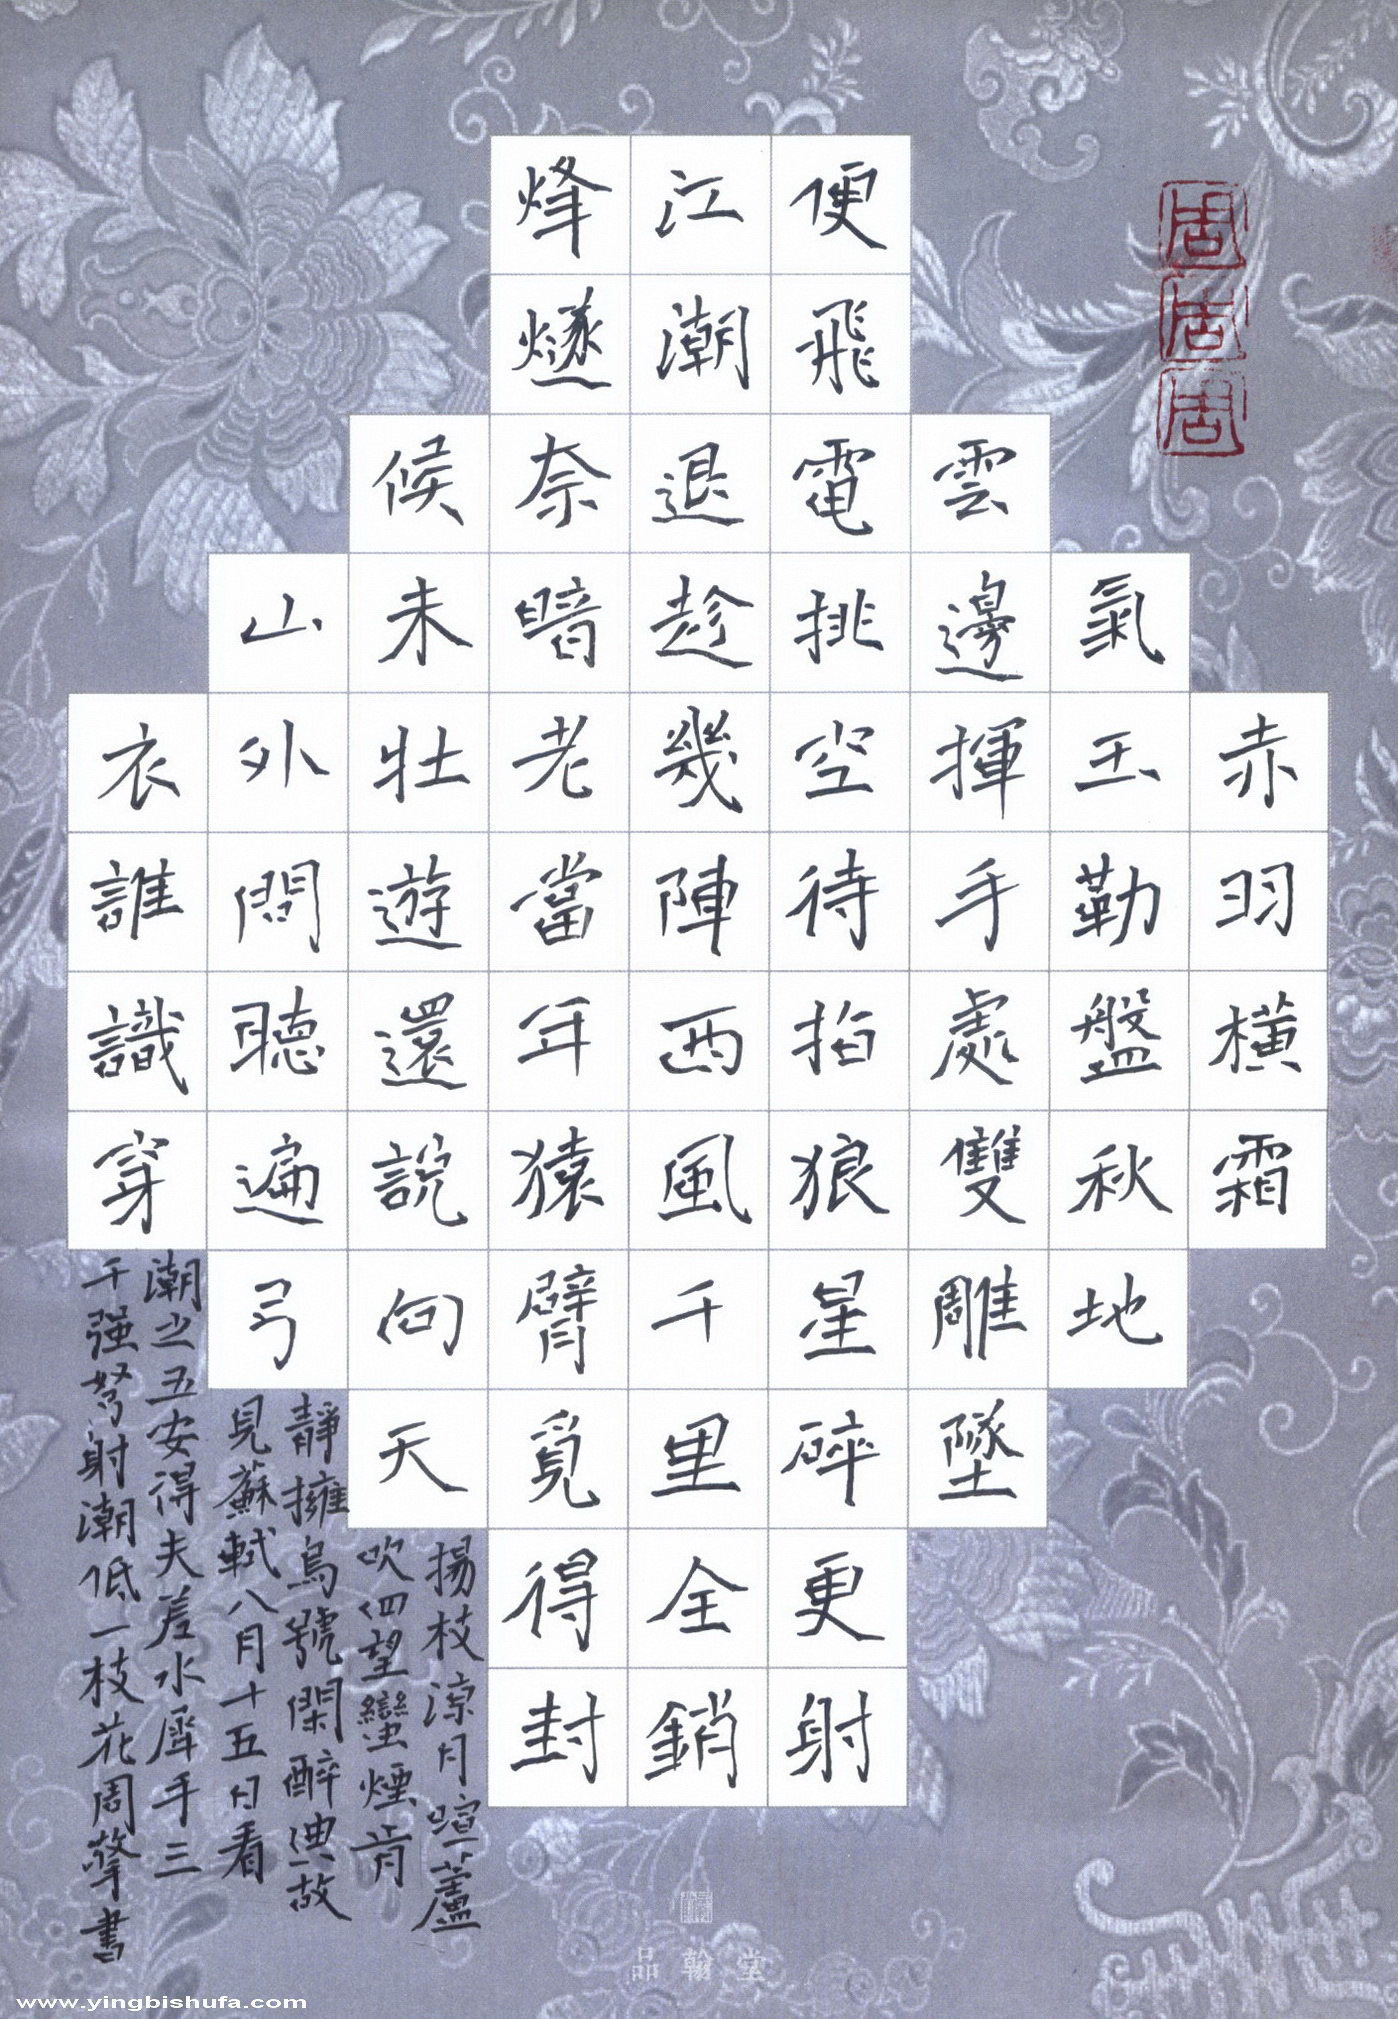 赤羽橫霜
氣玉勒盤秋地
雲邊揮手處雙雕墜
便飛電挑空待指狼星碎更射
江潮退趁幾陣西風千里全銷
烽燧奈暗老當年猿臂覓得封
候未壯遊還說向天
山外問聽遍弓
衣誰識穿
揚枝涼月喧蘆
吹四望蠻煙肯
靜擁烏號閑醉典故
見蘇軾八月十五日看
潮之五安得夫差水犀手三
千强弩射潮低一枝花周擎書
周
周
周
品翰堂
www.yingbishufa.com